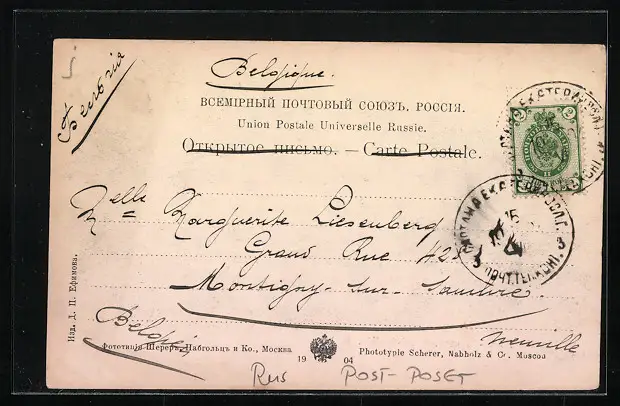 Бельгія
Belgique.
ВСЕМІРНЫЙ ПОЧТОВЫЙ СОЮЗЪ. РОССІЯ.
Union Postale Universelle Russie.
Открытое письмо. — Carte Postale.
Melle Marguerite Liesenberg
Grand Rue 42
Montigny-sur-Sambre.
Belge
Изд. Д. П. Ефимова.
Фототипія Шереръ, Набгольцъ и Ко., Москва
19 04
Phototypie Scherer, Nabholz & Co. Moscou
Rus
POST-POSET